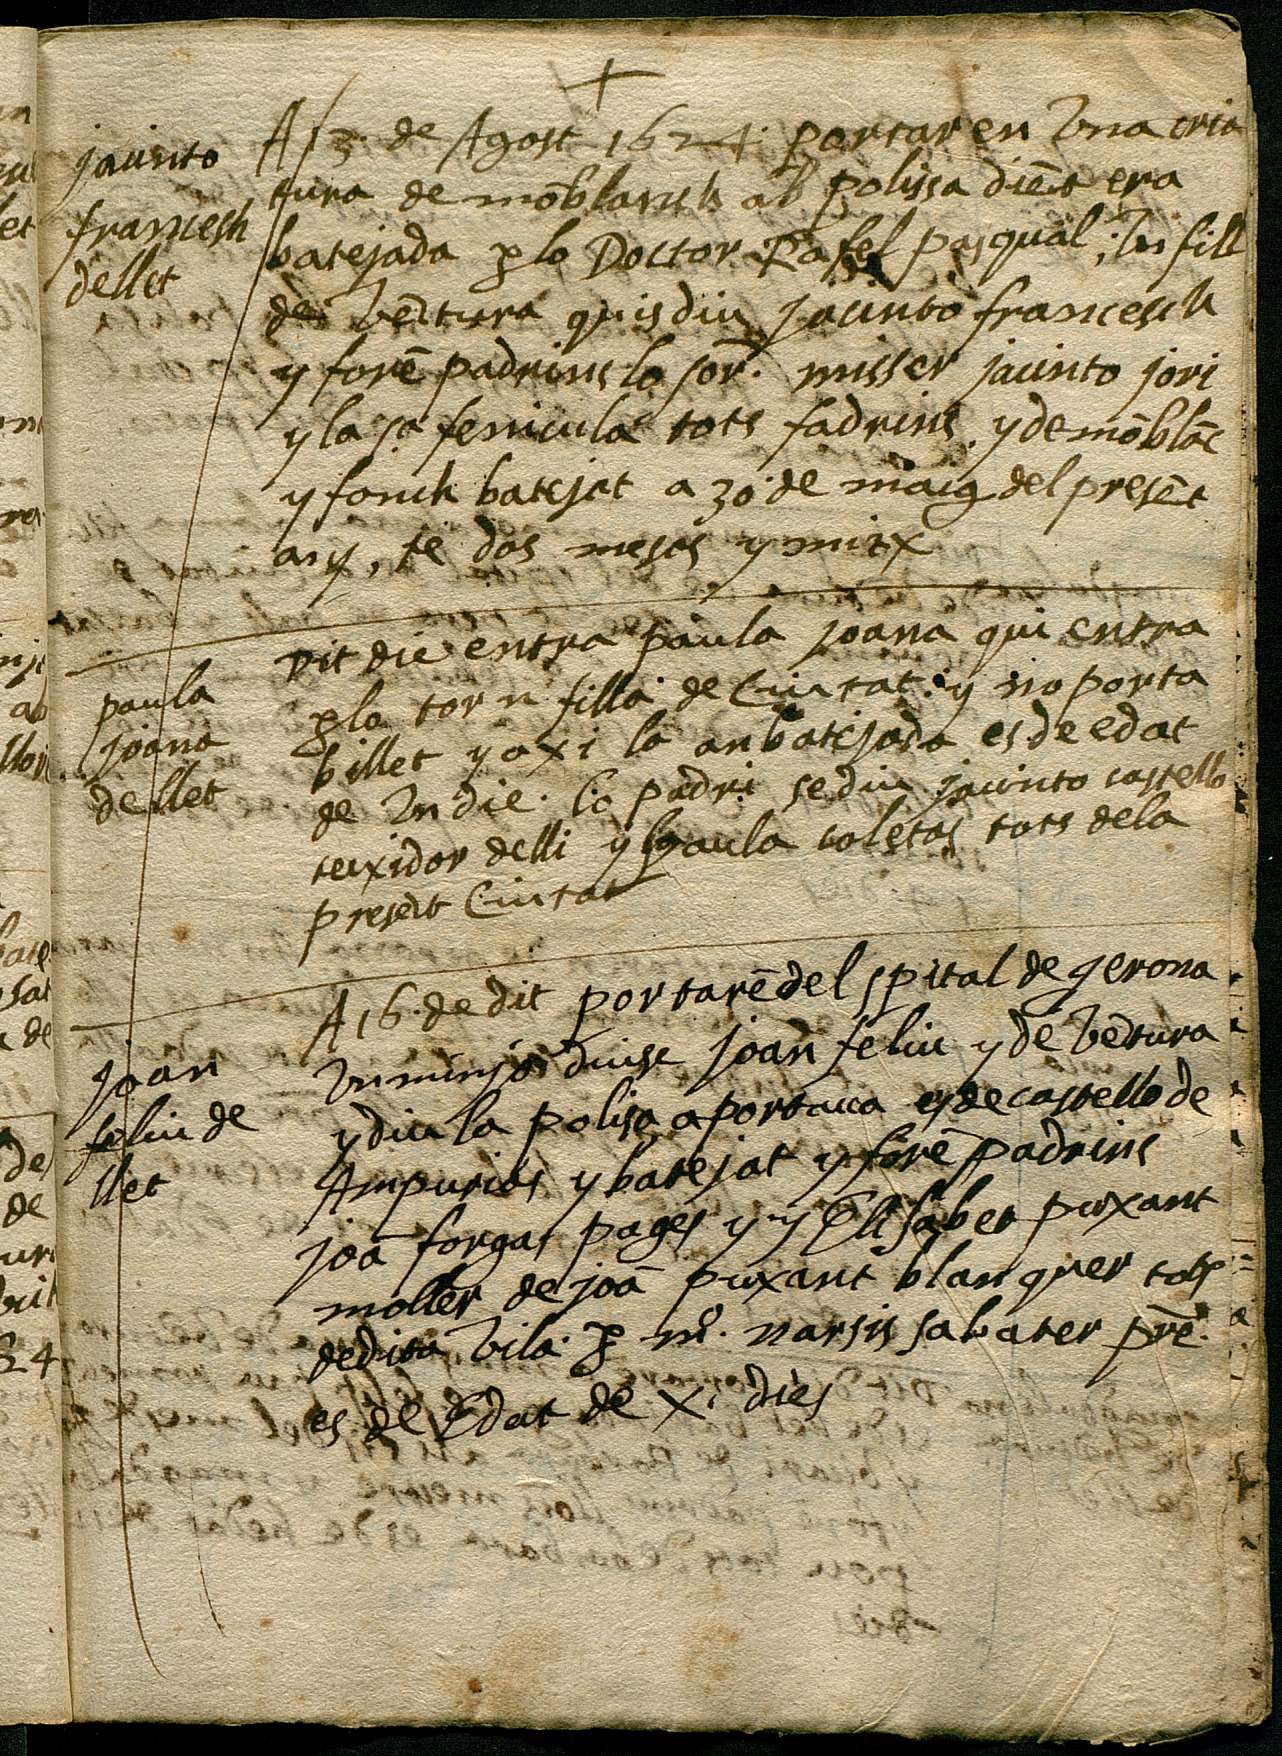 jacinto
francesh
de llet
A 13 de Agost 1624 portaren Vna cria
tura de mōblansh ab polissa diēt era
batejada ꝑ lo Doctor Rafel pasqual, es fill
de Vētura quis diu jacinto francesch
y forē padrins lo sor. misser jacinto jori
y la sa fenicula tots fadrins y de mōblāc
y fonch batejat a 30 de maig del presēt
any, te dos mesos y mitx
paula
joana
de llet
Dit die entra paula joana qui entra
ꝑ lo torn filla de Ciutat y no porta
billet y axi la an batejada es de edat
de Vn die. lo padri se diu jacinto castello
teixidor de lli y paula coletas tots de la
presēt Ciutat
joan
feliu de
llet
A 16 de dit portarē del spital de gerona
Vn minjo diuse joan feliu y de Vētura
y diu la polisa aportaua es de castello de
Ampurias y batejat y forē padrins
joā forgas pages y Elisabet puxant
moller de joā puxant blanquer tots
de dita Vila ꝑ mo. narsis sabater prē.
es de Edat de xi dies